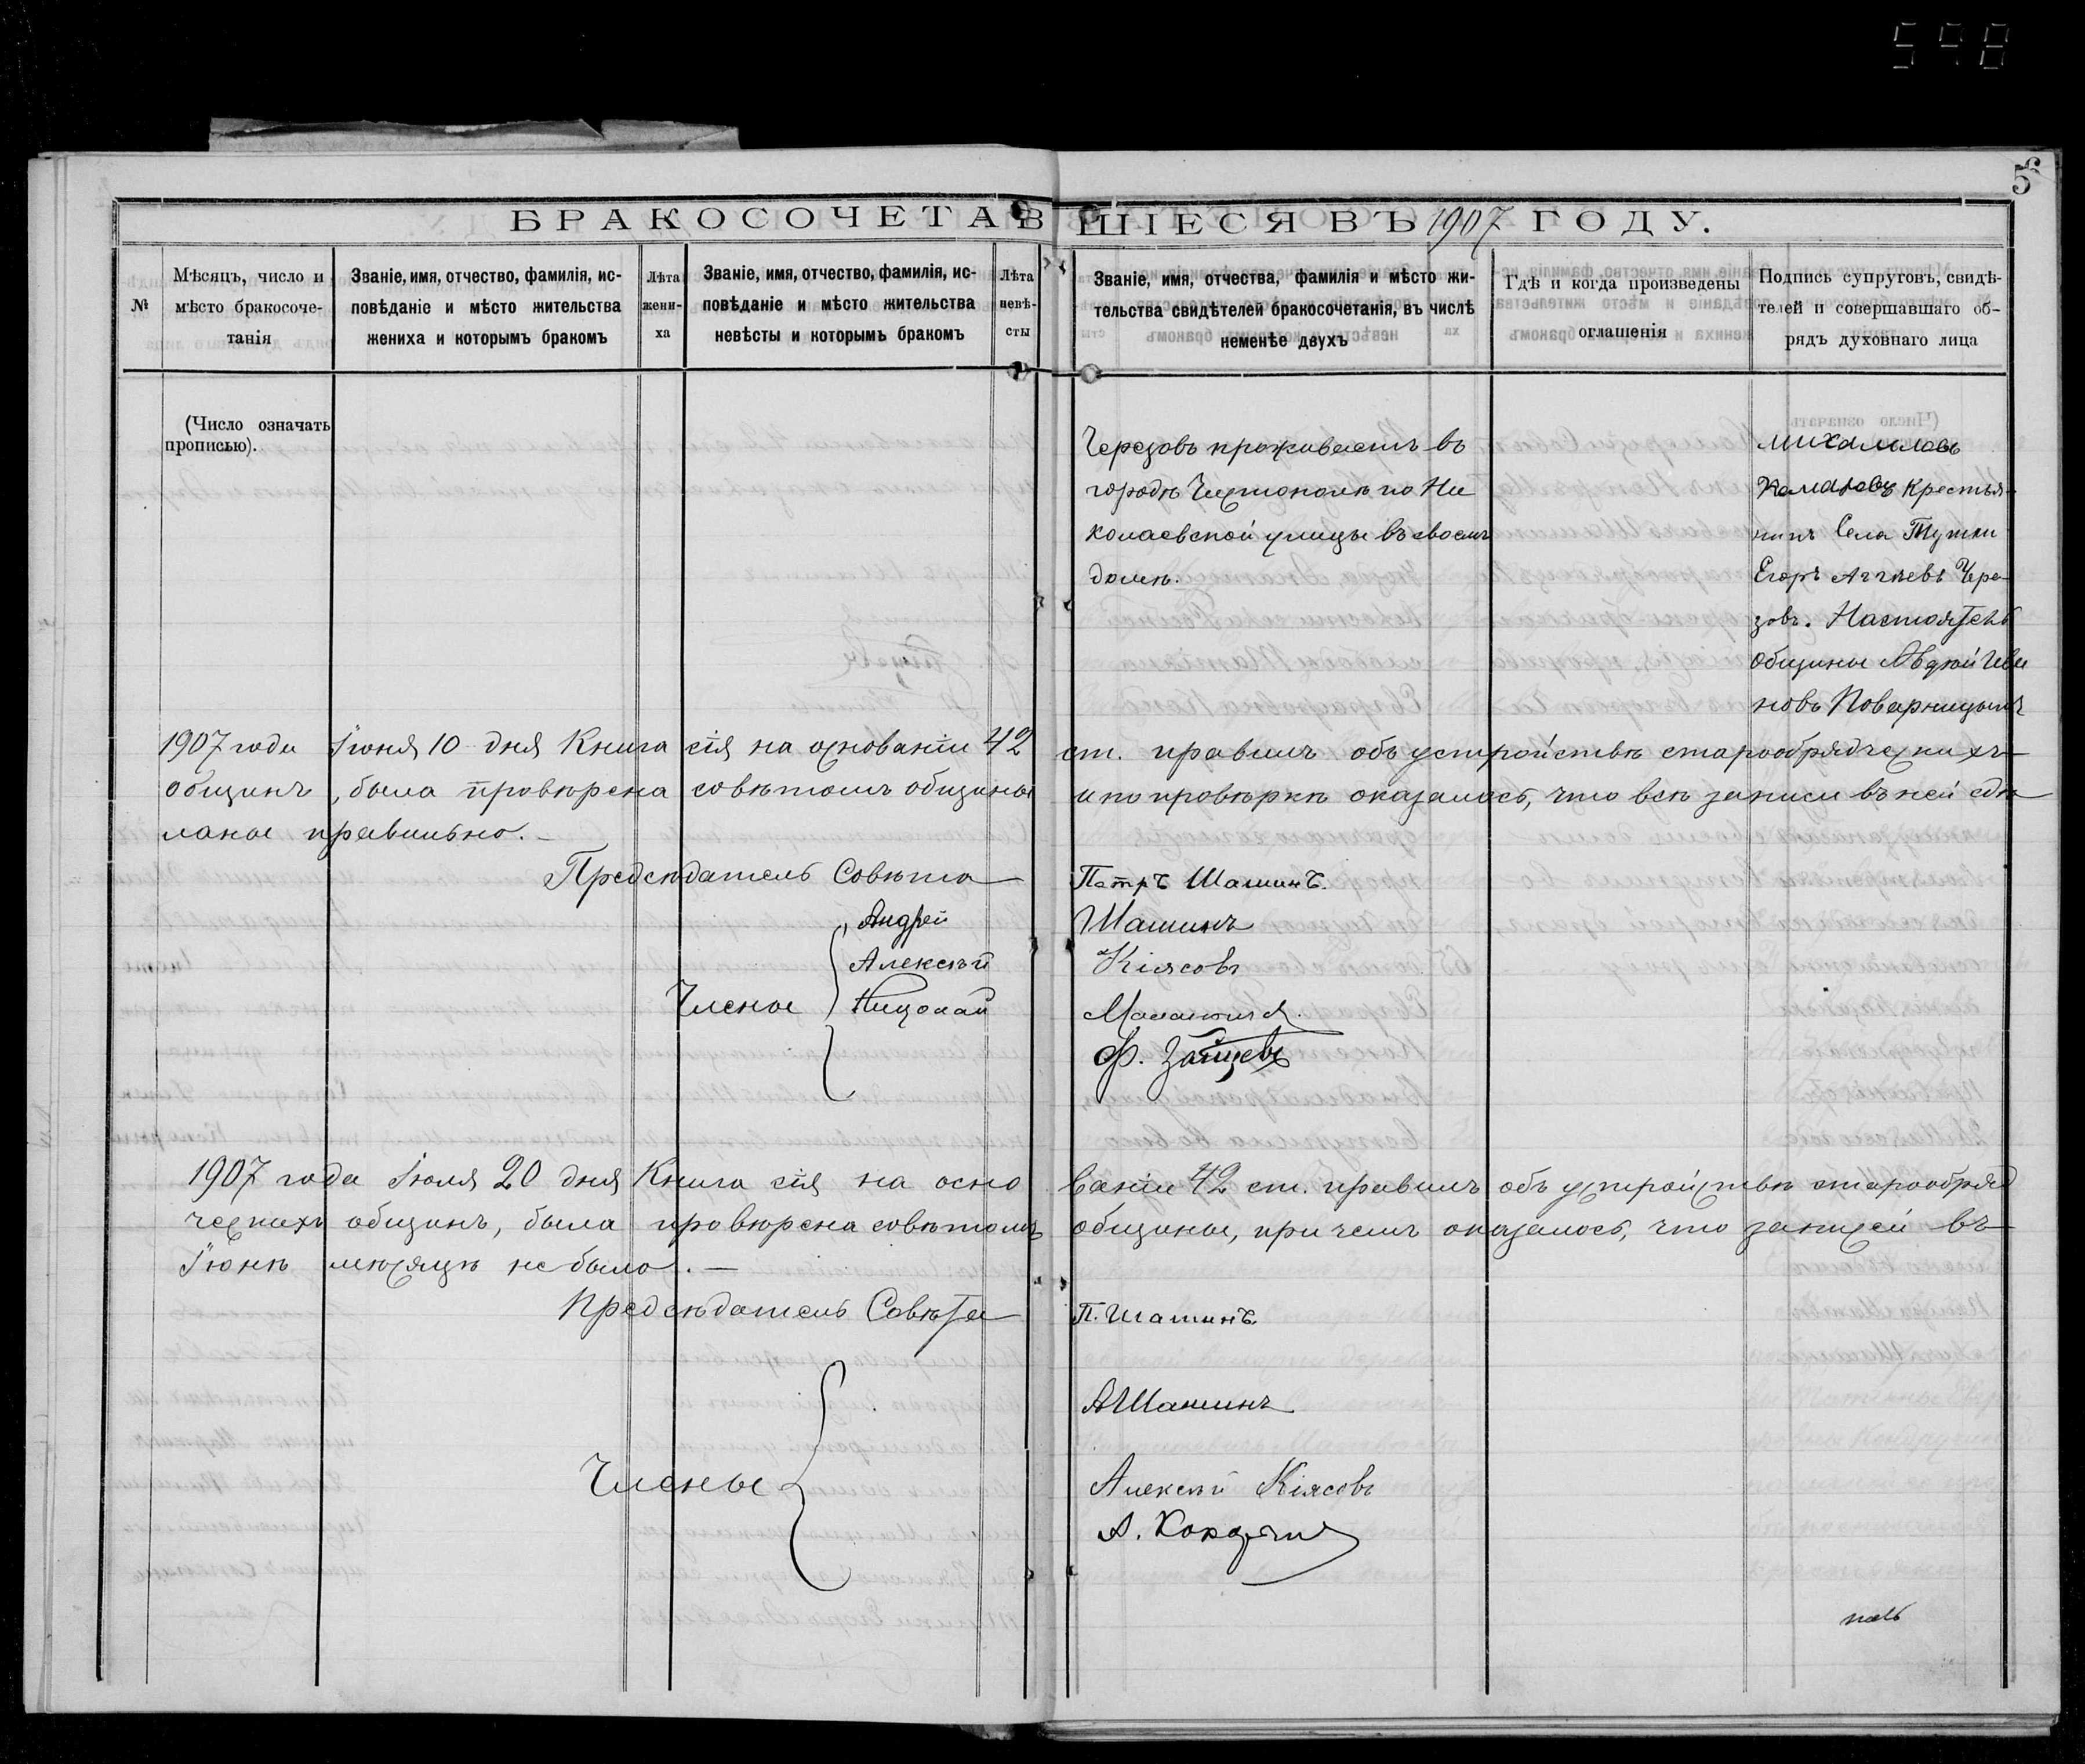 598
5
БРАКОСОЧЕТАВШІЕСЯ ВЪ 1907 ГОДУ.
№
Мѣсяцъ, число и
мѣсто бракосоче-
танія
Званіе, имя, отчество, фамилія, ис-
повѣданіе и мѣсто жительства
жениха и которымъ бракомъ
Лѣта
жени-
ха
Званіе, имя, отчество, фамилія, ис-
повѣданіе и мѣсто жительства
невѣсты и которымъ бракомъ
Лѣта
невѣ-
сты
Званіе, имя, отчества, фамилія и мѣсто жи-
тельства свидѣтелей бракосочетанія, въ числѣ
неменѣе двухъ
Гдѣ и когда произведены
оглашенія
Подпись супруговъ, свидѣ-
телей и совершавшаго об-
рядъ духовнаго лица
(Число означать
прописью).
Черезовъ проживаетъ въ
городѣ Чистополѣ по Ни
колаевской улицы въ своемъ
домѣ.
Михаиловъ
крестья-
нинъ Села
Егоръ Аггѣевъ Чере-
зовъ. Настоятель
общины
новъ Поварницынъ
1907 года Іюня 10 дня Книга сія на основаніи 42 ст. правилъ объ устройствѣ старообрядческихъ
общинъ, была провѣрена совѣтомъ общины и по провѣркѣ оказалось, что всѣ записи въ ней сдѣ
ланы правильно. —
Предсѣдатель Совѣта Петръ Шашинъ.
Андрей Шашинъ
Алексѣй Кіясовъ
Члены Николай
Ф. Зайцевъ
1907 года Іюля 20 дня Книга сія на осно ваніи 42 ст. правилъ объ устройствѣ старообряд
ческихъ общинъ, была провѣрена совѣтомъ общины, при чемъ оказалось, что записей въ
Іюнѣ мѣсяцѣ не было. —
Предсѣдатель Совѣта П. Шашинъ.
А Шашинъ
Члены Алексѣй Кіясовъ